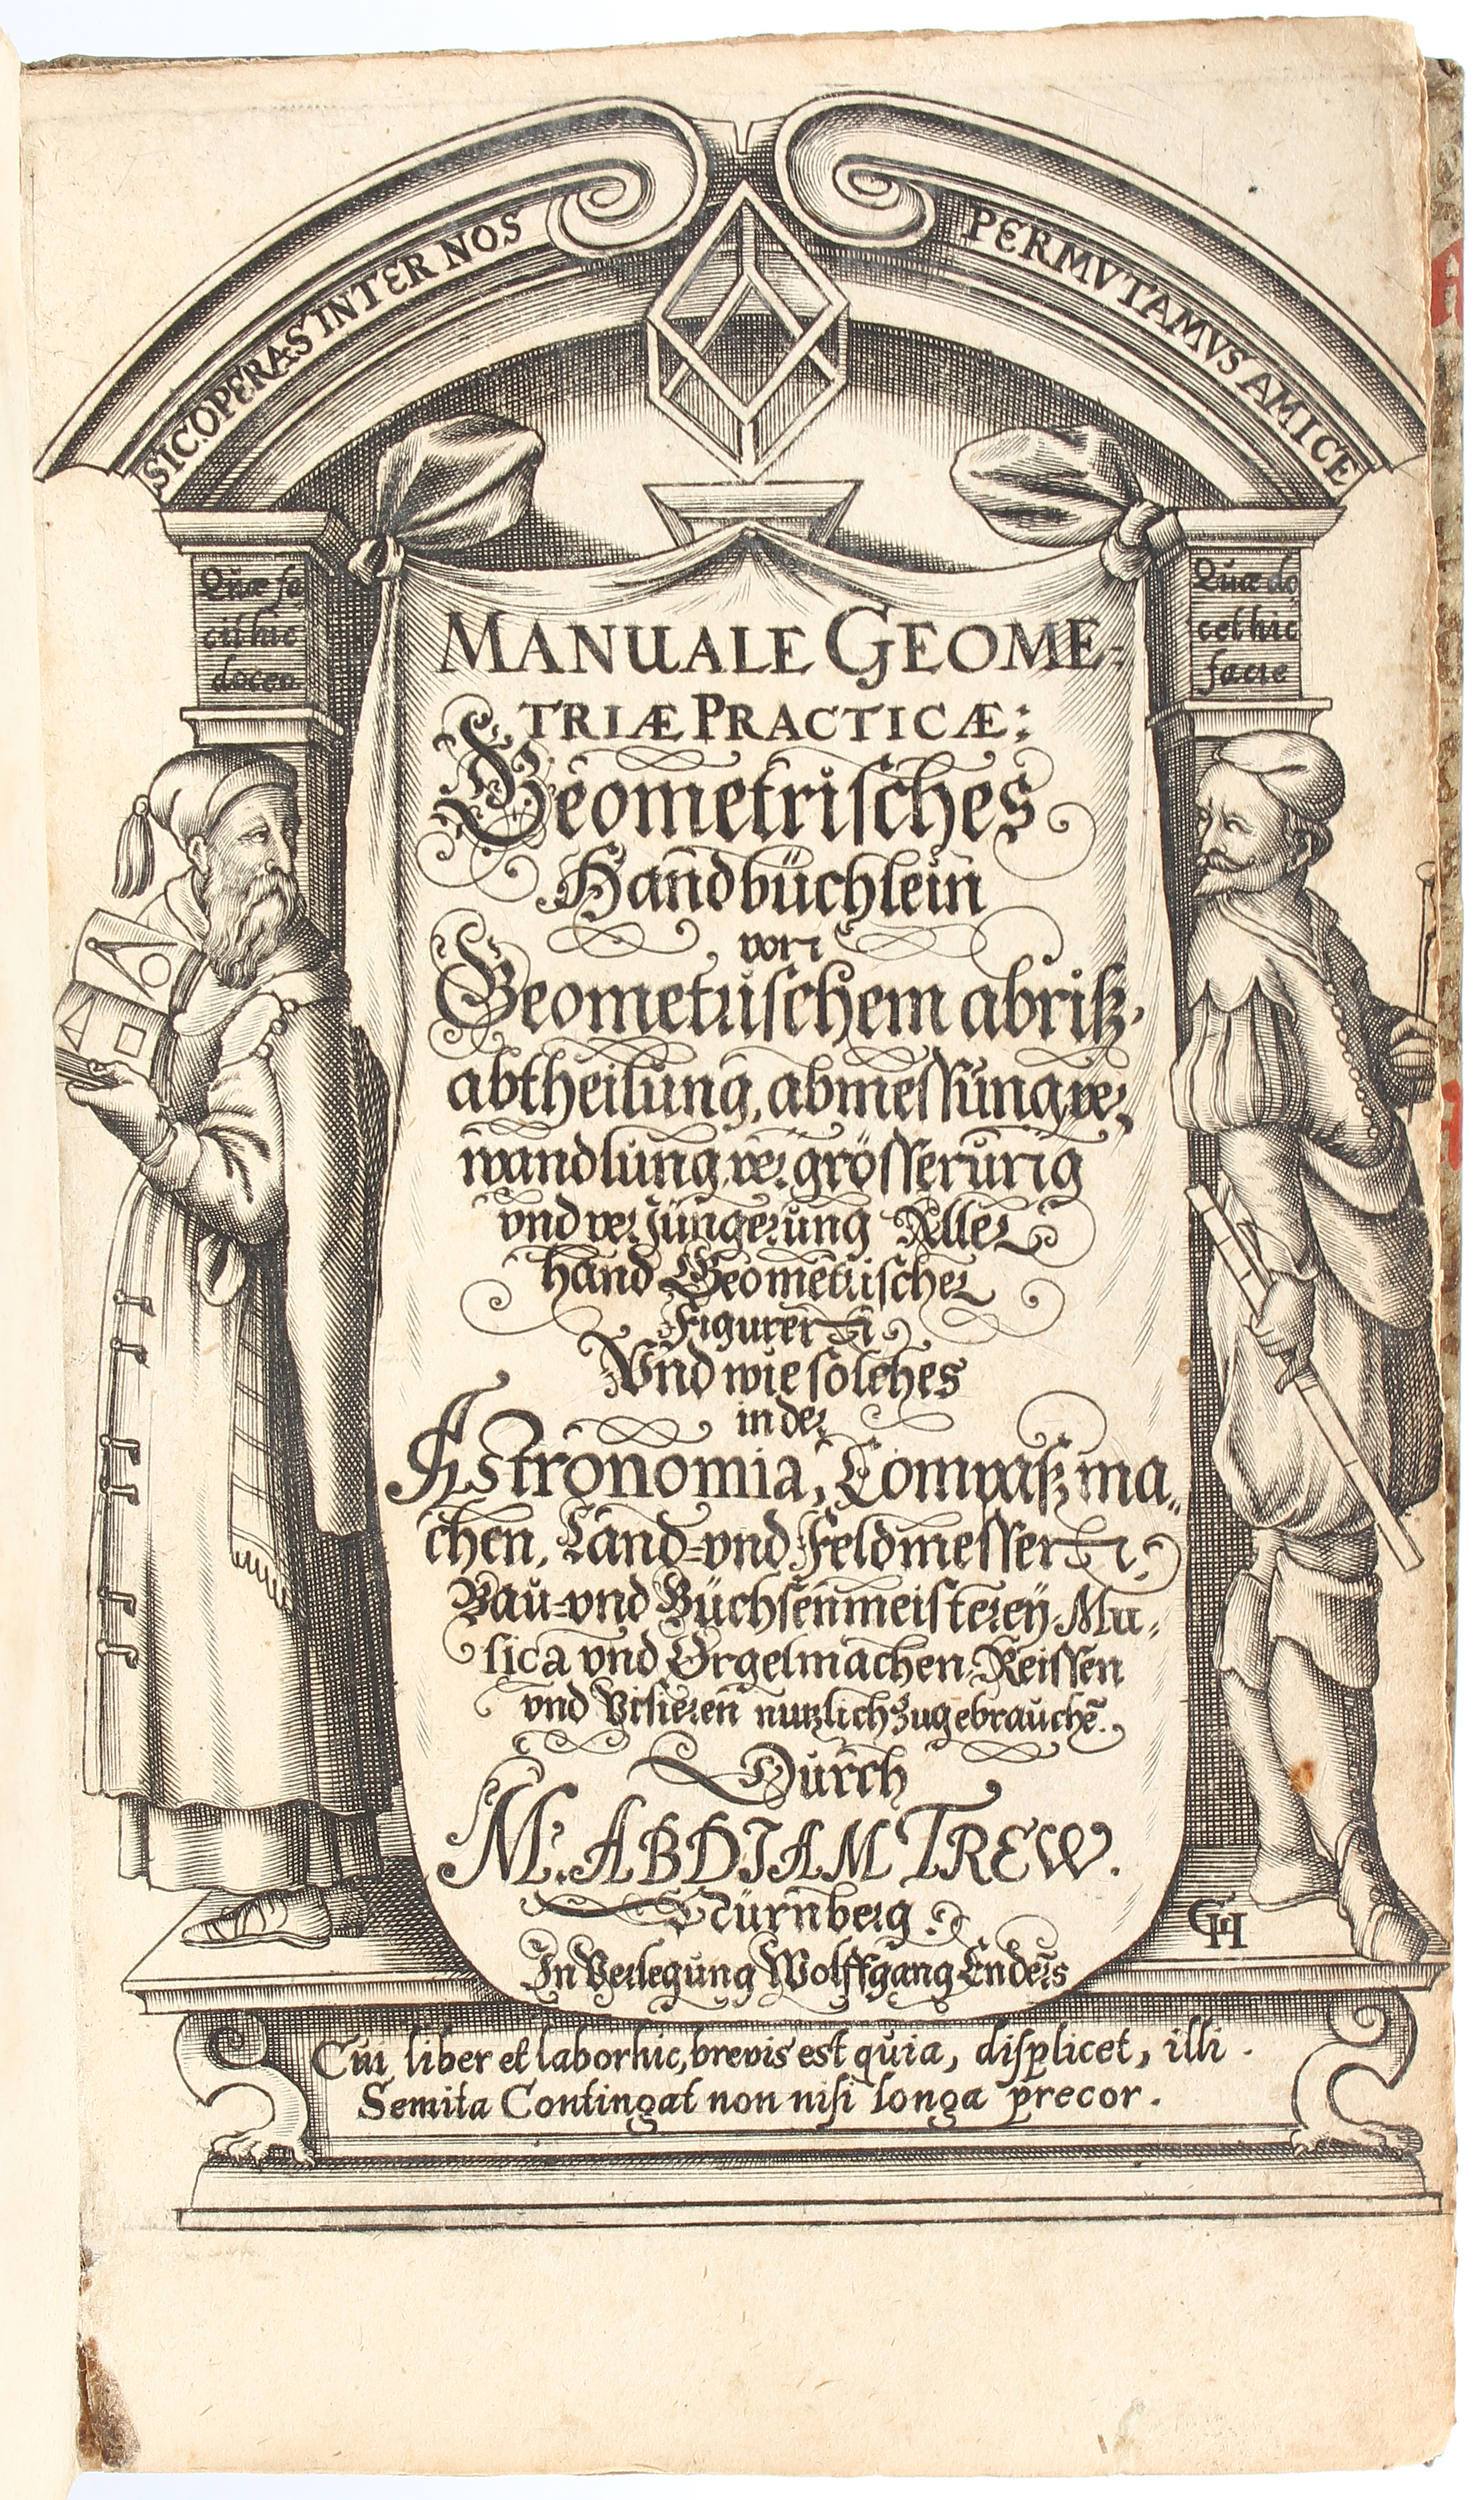 SIC OPERAS INTER NOS
PERMVTAMVS AMICE
Quæ fa
cit hic
doceo
Quæ do
cet hic
facie
MANUALE GEOME-
TRIÆ PRACTICÆ:
Geometrisches
Handbüchlein
von
Geometrischem abriß,
abtheilung, abmessung, ver,
wandlung, vergrösserung
vnd verjüngerung Aller
hand Geometrischer
Figuren
Vnd wie solches
in der
Astronomia, Compaß ma„
chen, Land=vnd Feldmessen,
Bau=vnd Büchsenmeisterey, Mu„
sica vnd Orgelmachen, Reissen
vnd Visieren nutzlich zugebrauchē.
Durch
M. ABDIAM TREW.
Nürnberg.
In Verlegung Wolffgang Enders
GH
Cui liber et labor hic, brevis est quia, displicet, illi.
Semita Contingat non nisi longa precor.